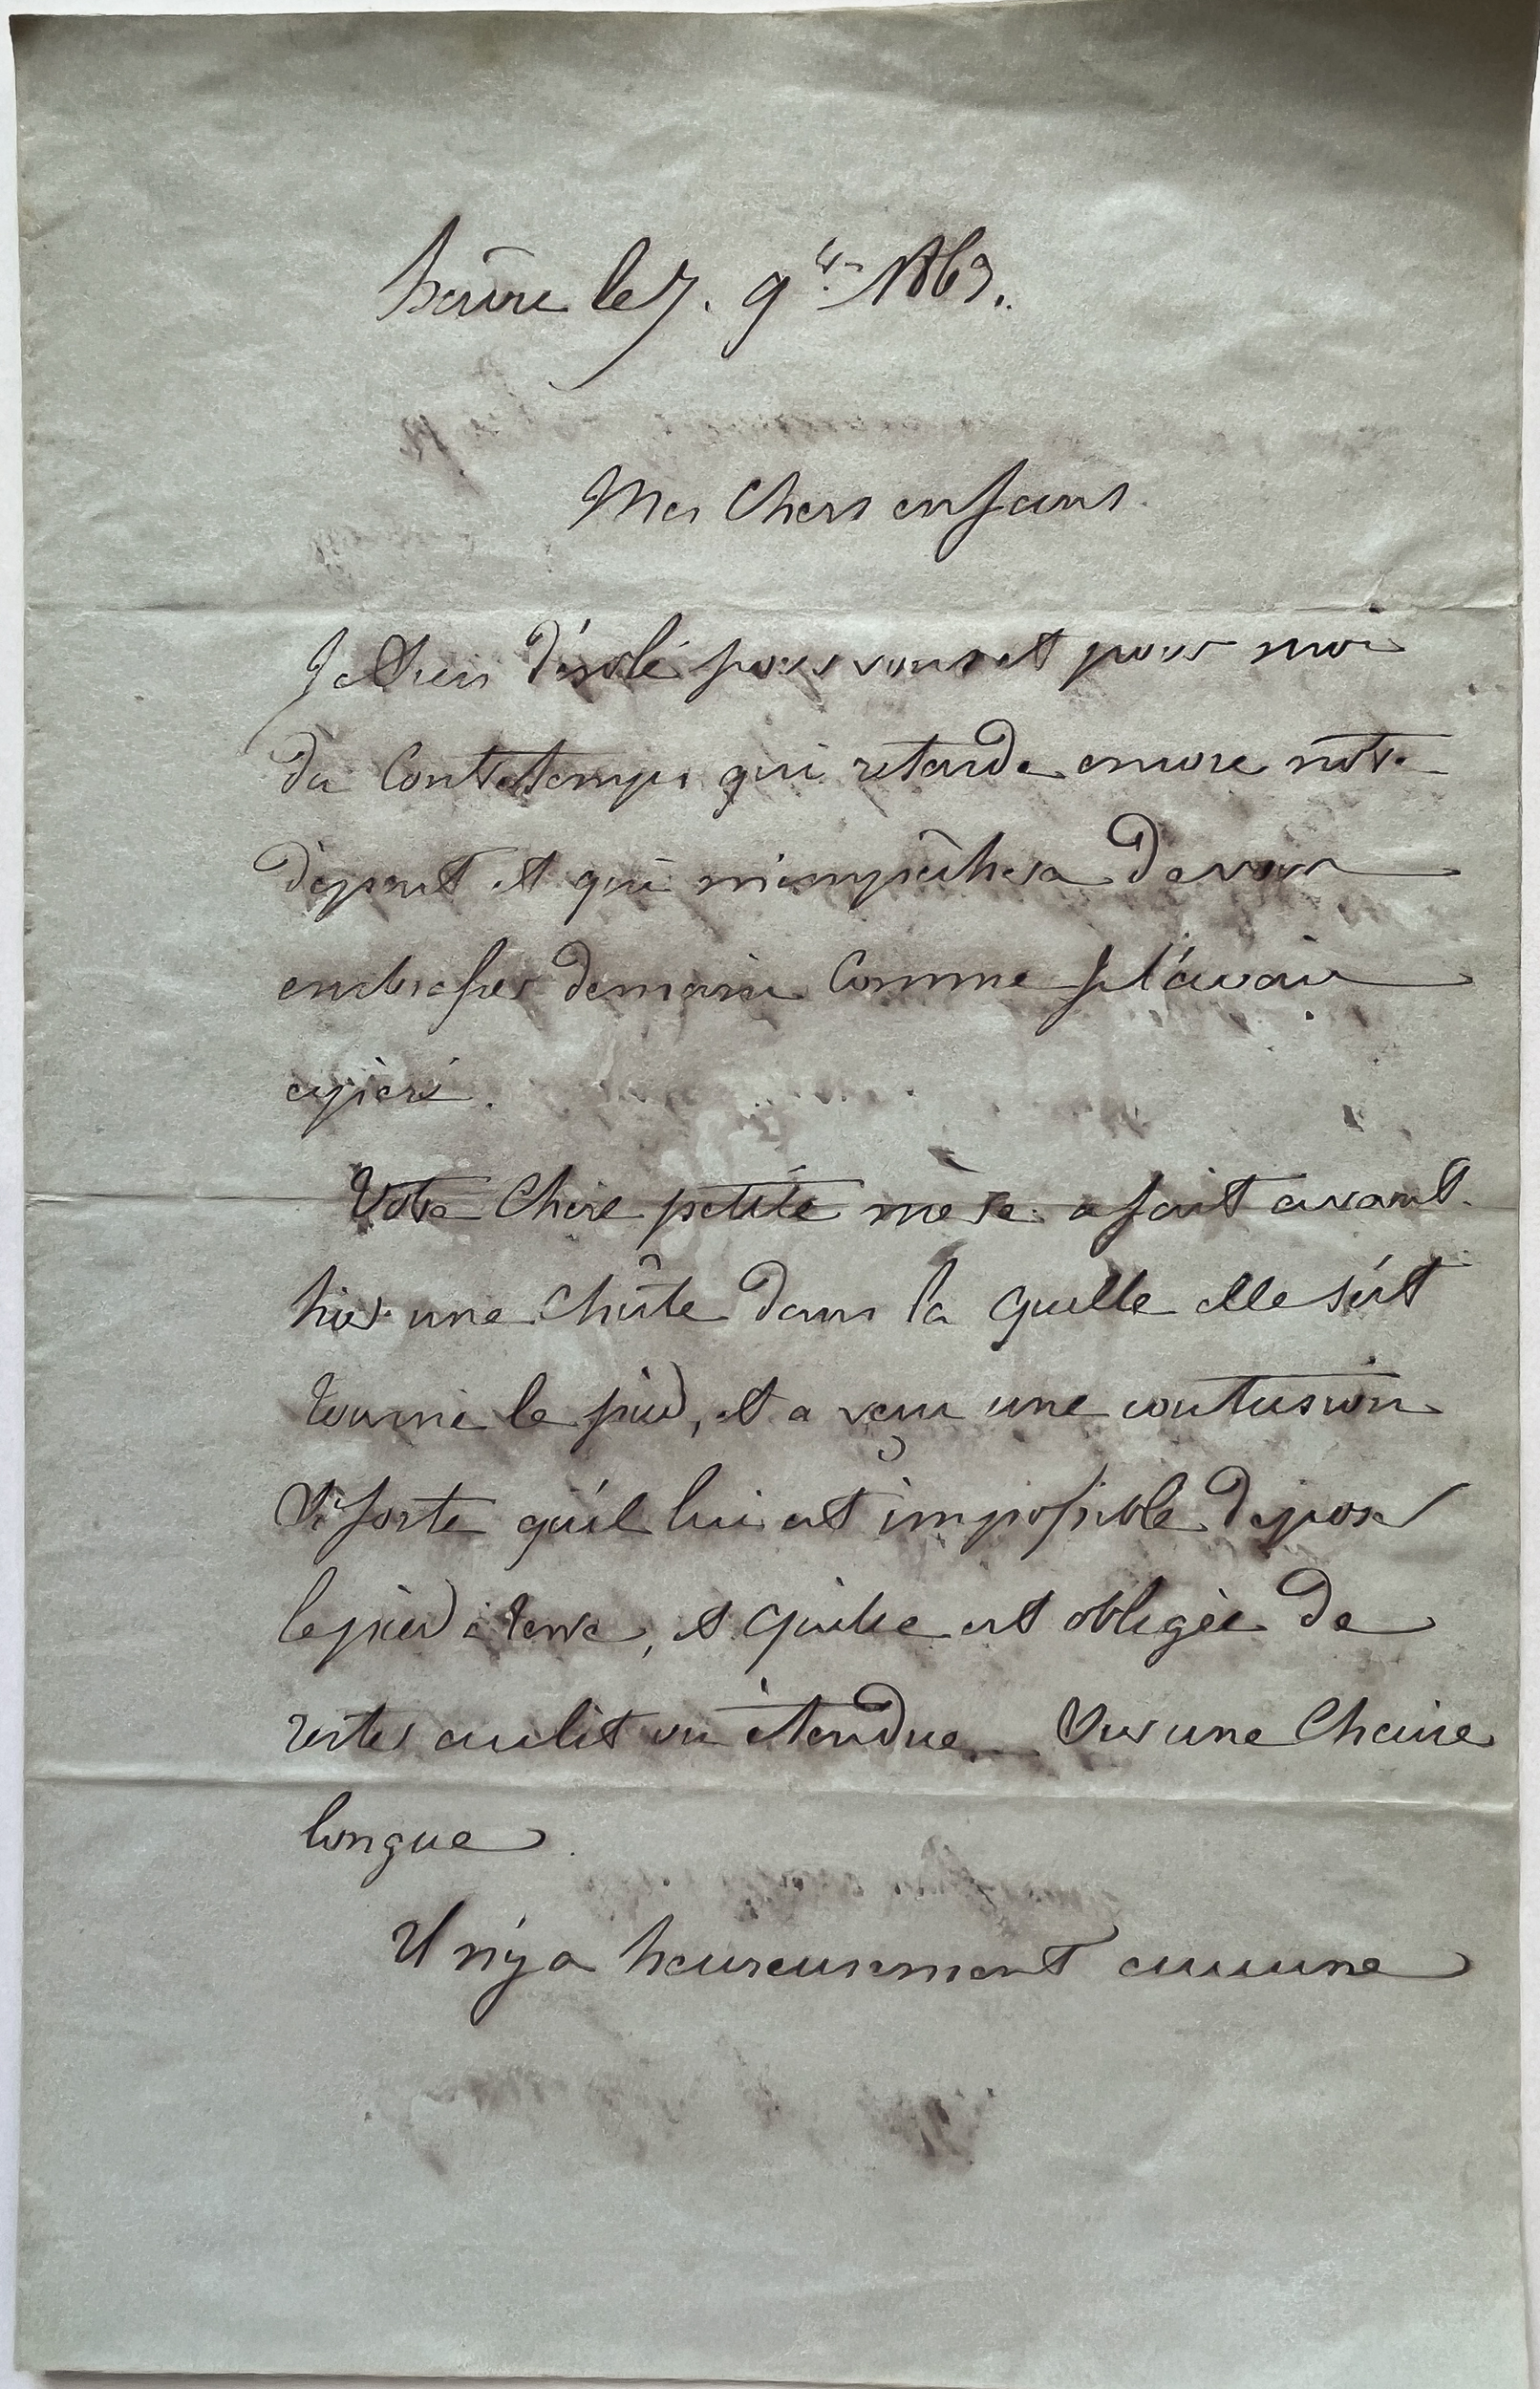 le 7. 9bre 1869.
Mes Chers enfans.
Je Suis désolé pour vous et pour moi
du Contretemps qui retarde encore notre
départ et qui m'empêchera de vous
embrasser demain Comme je l'avais
espéré.
Votre Chère petite mère a fait avant-
hier une Chûte dans la quelle elle s'est
tourné le pied, et a reçu une contusion
Si forte qu'il lui est impossible de poser
le pied à terre, et qu'elle est obligée de
rester au lit ou étendue Sur une Chaise
longue.
Il n'y a heureusement aucune